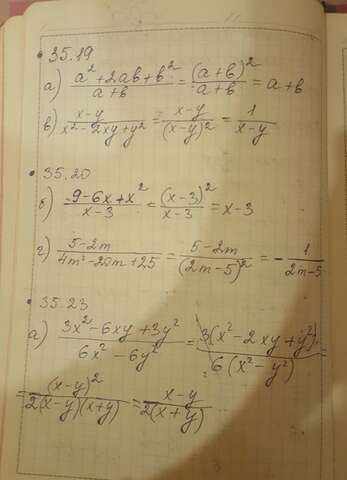 • 35.19
а) (a² + 2ab + b²)/(a + b) = (a + b)²/(a + b) = a + b
в) (x - y)/(x² - 2xy + y²) = (x - y)/(x - y)² = 1/(x - y)
• 35.20
б) (9 - 6x + x²)/(x - 3) = (x - 3)²/(x - 3) = x - 3
г) (5 - 2m)/(4m² - 20m + 25) = (5 - 2m)/(2m - 5)² = - 1/(2m - 5)
• 35.23
а) (3x² - 6xy + 3y²)/(6x² - 6y²) = 3(x² - 2xy + y²)/6(x² - y²) =
= (x - y)²/2(x - y)(x + y) = (x - y)/2(x + y)